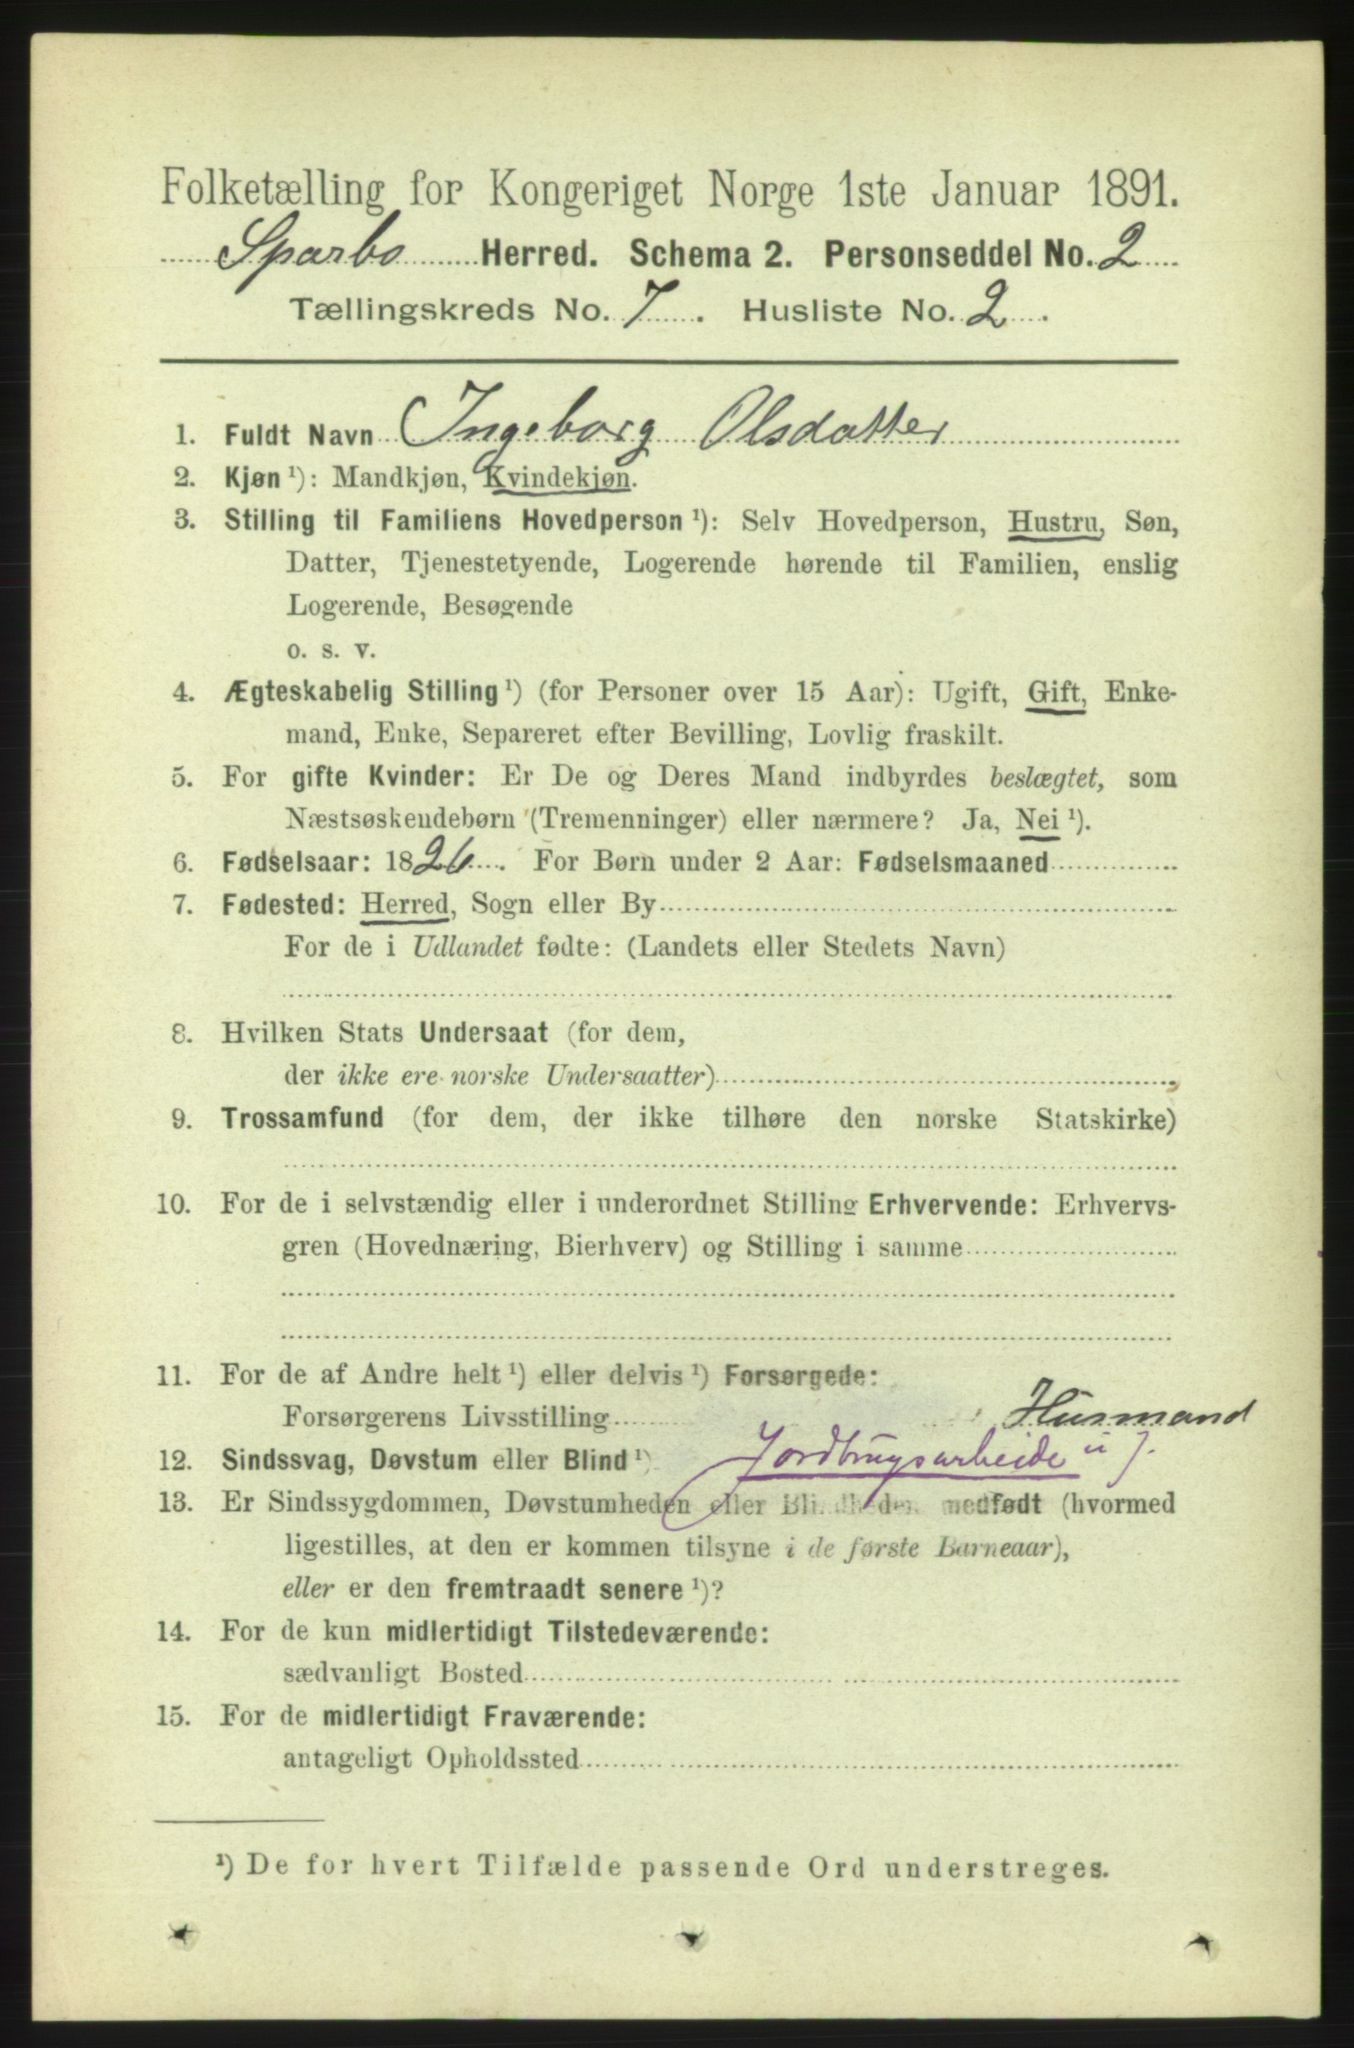 Folketælling for Kongeriget Norge 1ste Januar 1891.
Sparbo Herred. Schema 2. Personseddel No. 2
Tællingskreds No. 7. Husliste No. 2.
1. Fuldt Navn Ingeborg Olsdatter
2. Kjøn ¹): Mandkjøn, Kvindekjøn.
3. Stilling til Familiens Hovedperson ¹): Selv Hovedperson, Hustru, Søn,
Datter, Tjenestetyende, Logerende hørende til Familien, enslig
Logerende, Besøgende
o. s. v.
4. Ægteskabelig Stilling ¹) (for Personer over 15 Aar): Ugift, Gift, Enke-
mand, Enke, Separeret efter Bevilling, Lovlig fraskilt.
5. For gifte Kvinder: Er De og Deres Mand indbyrdes beslægtet, som
Næstsøskendebørn (Tremenninger) eller nærmere? Ja, Nei ¹).
6. Fødselsaar: 1826. For Børn under 2 Aar: Fødselsmaaned
7. Fødested: Herred, Sogn eller By
For de i Udlandet fødte: (Landets eller Stedets Navn)
8. Hvilken Stats Undersaat (for dem,
der ikke ere norske Undersaatter)
9. Trossamfund (for dem, der ikke tilhøre den norske Statskirke)
10. For de i selvstændig eller i underordnet Stilling Erhvervende: Erhvervs-
gren (Hovednæring, Bierhverv) og Stilling i samme
11. For de af Andre helt ¹) eller delvis ¹) Forsørgede:
Forsørgerens Livsstilling Husmand
12. Sindssvag, Døvstum eller Blind ¹) Jordbrugsarbeide u J.
13. Er Sindssygdommen, Døvstumheden eller Blindheden medfødt (hvormed
ligestilles, at den er kommen tilsyne i de første Barneaar),
eller er den fremtraadt senere ¹)?
14. For de kun midlertidigt Tilstedeværende:
sædvanligt Bosted
15. For de midlertidigt Fraværende:
antageligt Opholdssted
¹) De for hvert Tilfælde passende Ord understreges.